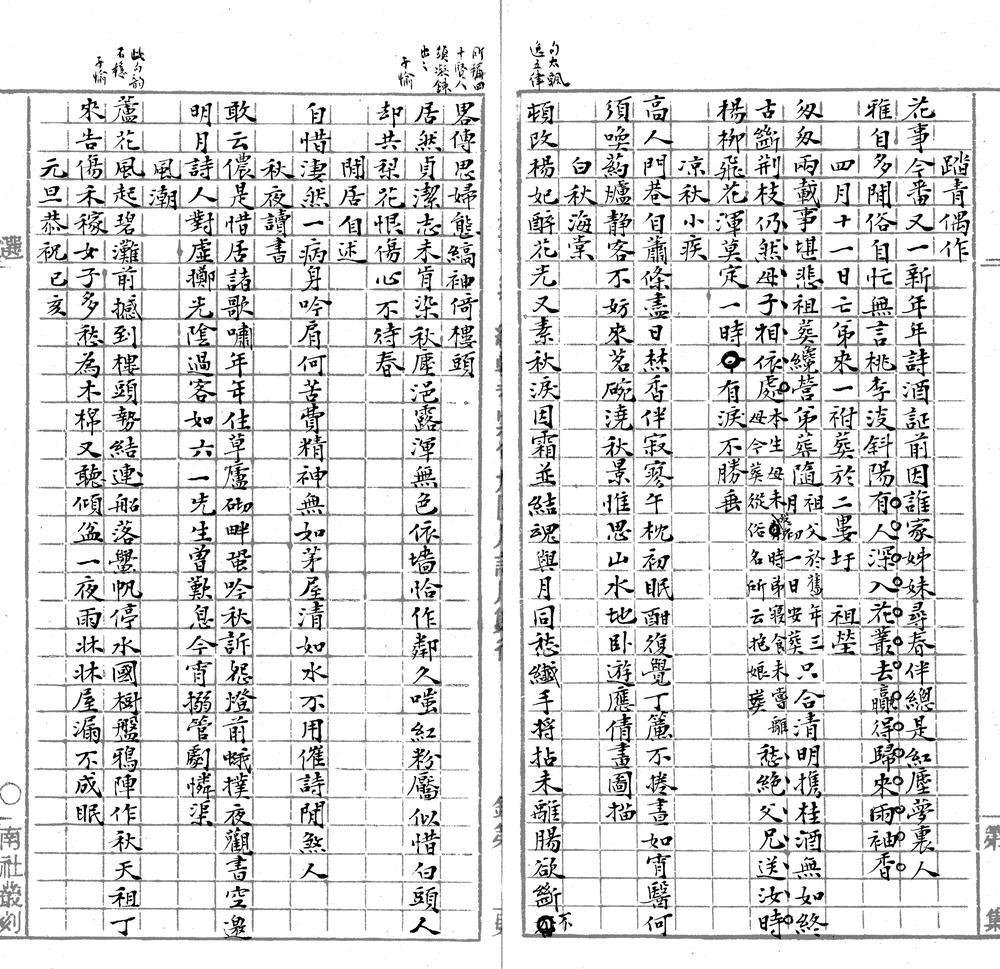 句太飄逸五律
踏青偶作
花事今番又一新年年詩酒証前因誰家姊妹尋春伴總是紅塵夢裏人
雅自多閒俗自忙無言桃李沒斜陽有人深入花叢去贏得歸來雨袖香
四月十一日亡弟來一祔葬於二婁圩祖塋
匆匆兩載事堪悲祖葬纔營弟葬隨祖父於舊年三月初一日安葬只合清明擕桂酒無如終
古斷荆枝仍然母子相依處本生母未葬時弟寢食未嘗離母今葬從俗名所云抱娘葬愁絕父兄送汝時
楊柳飛花渾莫定一時有淚不勝垂
凉秋小疾
高人門巷自蕭條盡日焚香伴寂寥午枕初眠酣復覺丁簾不捲晝如宵醫何
須喚葯爐静客不妨來茗碗澆秋景惟思山水地卧遊應倩畫圖描
白秋海棠
頓改楊妃醉花光又素秋淚因霜並結魂與月同愁纖手捋拈未離腸欲斷不
所稱四十賢人須凝鍊出之 子愉
畧傳思婦態縞袖倚樓頭
居然貞潔志未肯染秋塵浥露渾無色依墻恰作鄰久嗤紅粉靨似惜白頭人
却共梨花恨傷心不待春
閒居自述
自惜凄然一病身吟眉何苦費精神無如茅屋清如水不用催詩閒煞人
秋夜讀書
敢云儂是惜居諸歌嘯年年住草廬砌畔蛩吟秋訴怨燈前蛾撲夜觀書空邀
明月詩人對虛擲光陰過客如六一先生曾歎息今宵搦管劇憐渠
風潮
此句韵不穩 子愉
蘆花風起碧灘前撼到樓頭勢結連船落蠻帆停水國樹盤鴉陣作秋天租丁
來告傷禾稼女子多愁為木棉又聽傾盆一夜雨牀牀屋漏不成眠
元旦恭祝己亥
選
南社叢刻